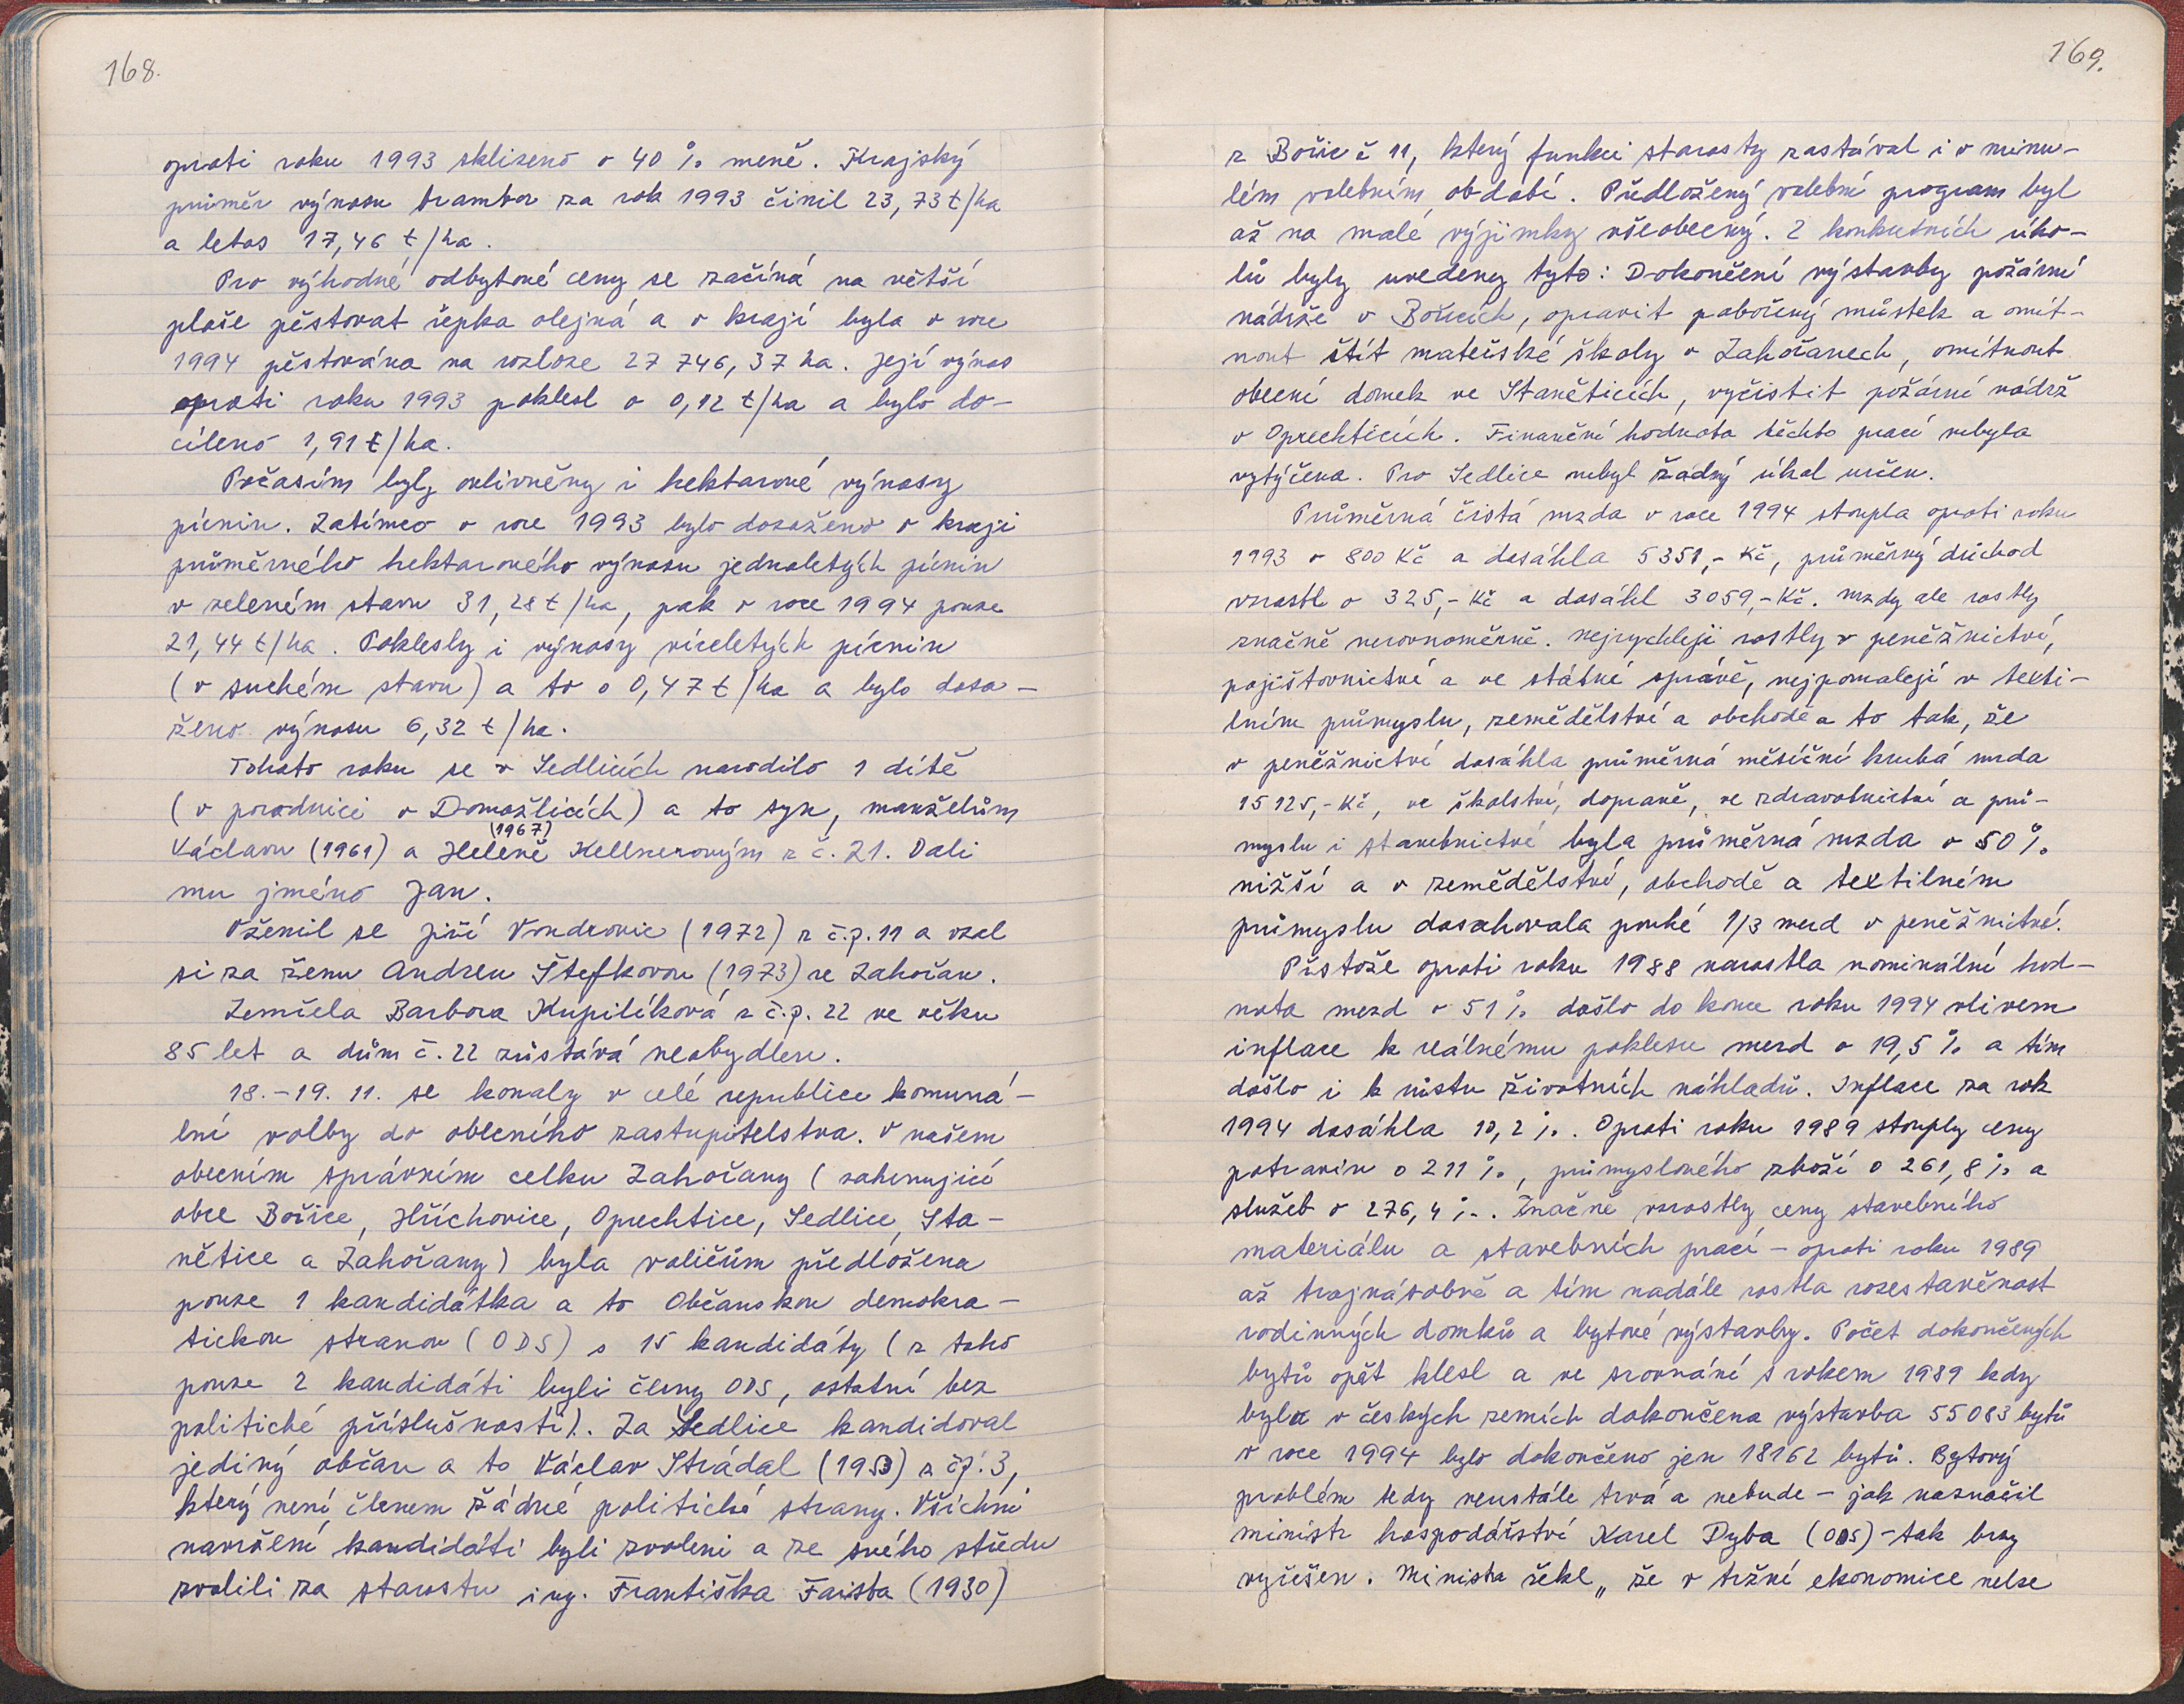 168.
oproti roku 1993 sklizeno o 40 % meně. Krajský
průměr výnosu brambor za rok 1993 činil 23,73 t/ha
a letos 17,46 t/ha.
Pro výhodné odbytové ceny se začíná na větší
ploše pěstovat řepka olejná a v kraji byla v roce
1994 pěstována na rozloze 27 746,37 ha. Její výnos
oproti roku 1993 poklesl o 0,12 t/ha a bylo do-
cíleno 1,91 t/ha.
Počasím byly ovlivněny i hektarové výnosy
pícnin. Zatímco v roce 1993 bylo dosaženo v kraji
průměrného hektarového výnosu jednoletých pícnin
v zeleném stavu 31,28 t/ha, pak v roce 1994 pouze
21,44 t/ha. Poklesly i výnosy víceletých pícnin
(v suchém stavu) a to o 0,47 t/ha a bylo dosa-
ženo výnosu 6,32 t/ha.
Tohoto roku se v Sedlicích narodilo 1 dítě
(v porodnici v Domažlicích) a to syn, manželům
(1967)
Václavu (1961) a Heleně Kellnerovým z č. 21. Dali
mu jméno Jan.
Oženil se Jiří Vondrovic (1972) z č.p. 11 a vzal
si za ženu Andreu Štefkovou (1973) ze Zahořan.
Zemřela Barbora Kupilíková z č.p. 22 ve věku
85 let a dům č. 22 zůstává neobydlen.
18.-19. 11. se konaly v celé republice komuná-
lní volby do obecního zastupitelstva. V našem
obecním správním celku Zahořany (zahrnující
obce Bořice, Hříchovice, Oprechtice, Sedlice, Sta-
nětice a Zahořany) byla voličům předložena
pouze 1 kandidátka a to Občanskou demokra-
tickou stranou (ODS) s 15 kandidáty (z toho
pouze 2 kandidáti byli členy ODS, ostatní bez
politické příslušnosti). Za Sedlice kandidoval
jediný občan a to Václav Strádal (1953) z čp. 3,
který není členem žádné politické strany. Všichni
navržení kandidáti byli zvoleni a ze svého středu
zvolili za starostu ing. Františka Faista (1930)
169.
z Bořic č 11, který funkci starosty zastával i v minu-
lém volebním období. Předložený volební program byl
až na malé výjimky všeobecný. Z konkrétních úko-
lů byly uvedeny tyto: Dokončení výstavby požární
nádrže v Bořicích, opravit pobořený můstek a omít-
nout štít mateřské školy v Zahořanech, omítnout
obecní domek ve Staněticích, vyčistit požární nádrž
v Oprechticích. Finanční hodnota těchto prací nebyla
vytýčena. Pro Sedlice nebyl žádný úkol určen.
Průměrná čistá mzda v roce 1994 stoupla oproti roku
1993 o 800 Kč a dosáhla 5351,- Kč, průměrný důchod
vzrostl o 325,- Kč a dosáhl 3059,- Kč. Mzdy ale rostly
značně nerovnoměrně. Nejrychleji rostly v peněžnictví,
pojišťovnictví a ve státní správě, nejpomaleji v texti-
lním průmyslu, zemědělství a obchodě a to tak, že
v peněžnictví dosáhla průměrná měsíční hrubá mzda
15125,- Kč, ve školství, dopravě, ve zdravotnictví a prů-
myslu i stavebnictví byla průměrná mzda o 50 %
nižší a v zemědělství, obchodě a textilném
průmyslu dosahovala pouhé 1/3 mezd v peněžnictví.
Přstože oproti roku 1988 narostla nominální hod-
nota mezd o 51 % došlo do konce roku 1994 vlivem
inflace k reálnému poklesu mezd o 19,5 % a tím
došlo i k růstu životních nákladů. Inflace za rok
1994 dosáhla 10,2 %. Oproti roku 1989 stouply ceny
potravin o 211 %, průmyslového zboží o 261,8 % a
služeb o 276,4 %. Značně vzrostly ceny stavebního
materiálu a stavebních prací - oproti roku 1989
až trojnásobně a tím nadále rostla rozestavěnost
rodinných domků a bytové výstavby. Počet dokončených
bytů opět klesl a ve srovnání s rokem 1989 kdy
byla v českých zemích dokončena výstavba 55083 bytů
v roce 1994 bylo dokončeno jen 18162 bytů. Bytový
problém tedy neustále trvá a nebude - jak naznačil
ministr hospodářství Karel Dyba (ODS) - tak brzy
vyřešen. Ministr řekl „že v tržní ekonomice nelze